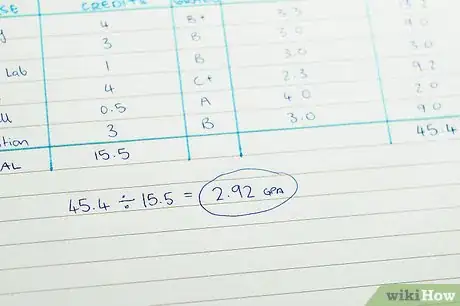 CREDITS
4 B+ 3.3 13.2
3 B 3.0 9.0
Lab 1 B 3.0 3.0
4 C+ 2.3 9.2
0.5 A 4.0 2.0
3 B 3.0 9.0
15.5 45.4
45.4 ÷ 15.5 = 2.92 GPA
wikiHow